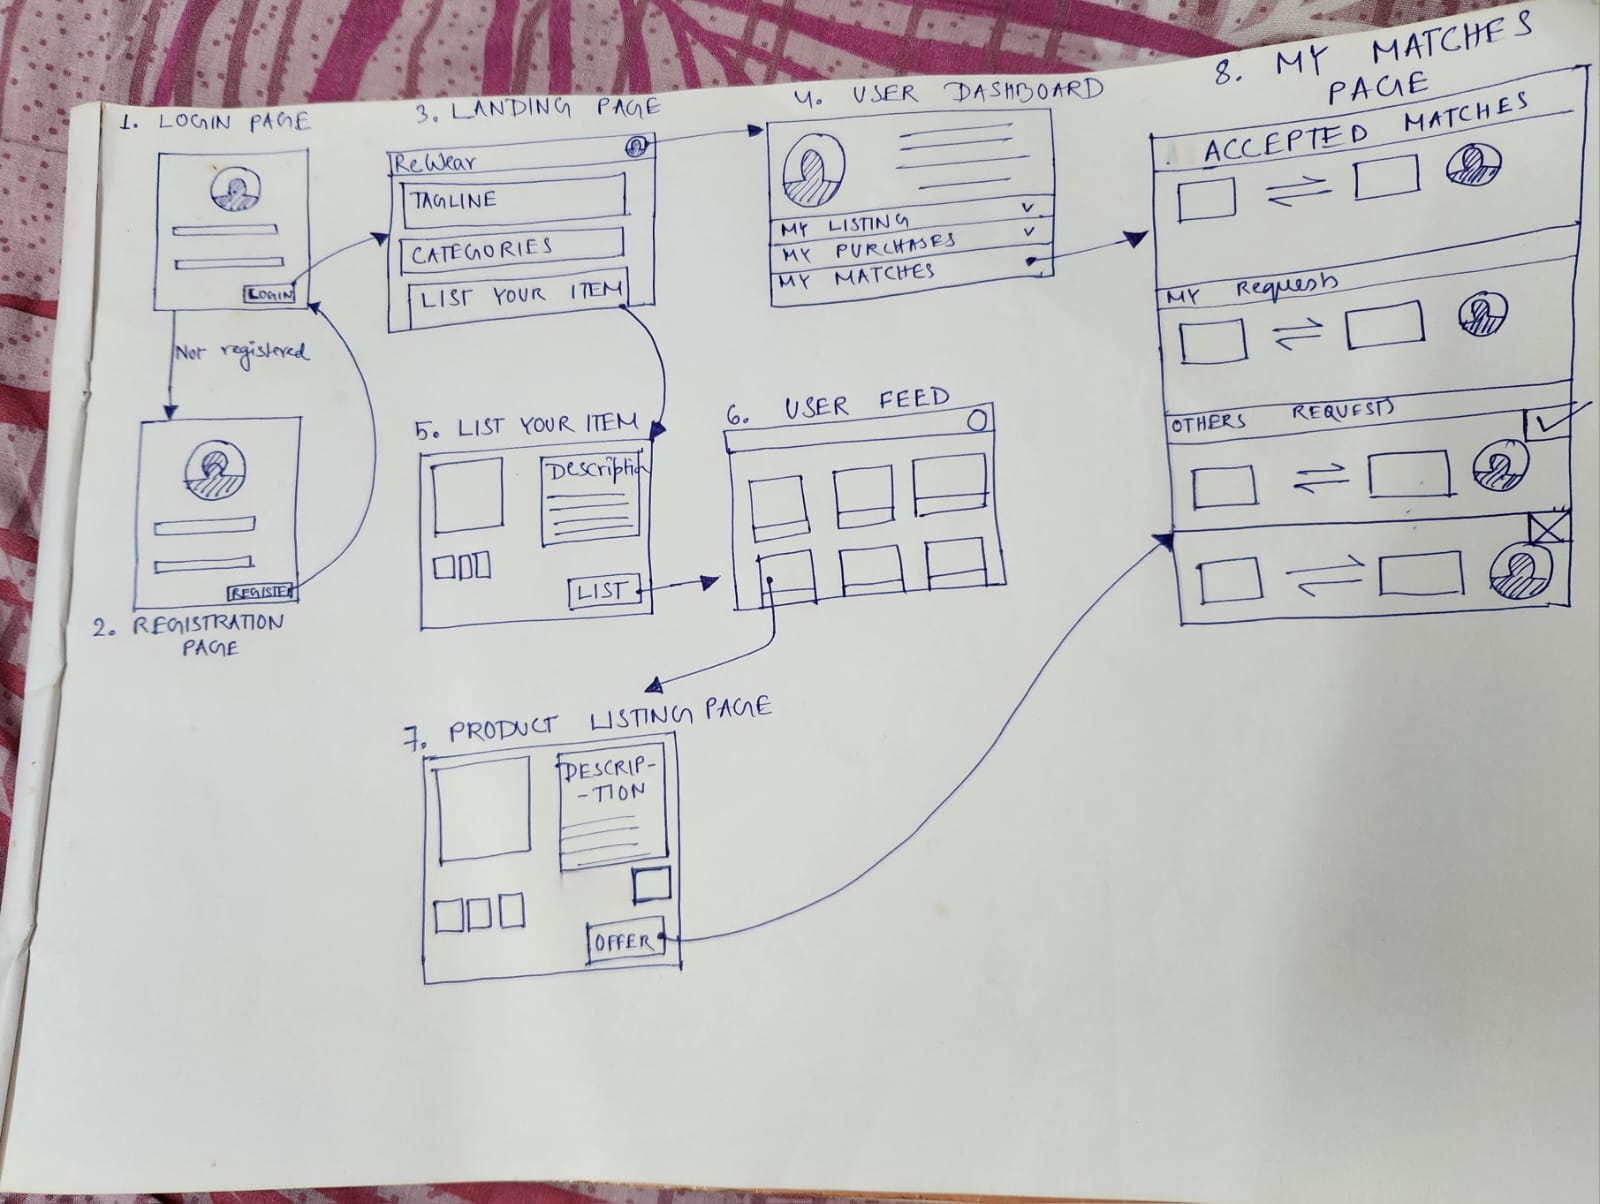 1. LOGIN PAGE
LOGIN
Not registered
REGISTER
2. REGISTRATION
PAGE
3. LANDING PAGE
ReWear
TAGLINE
CATEGORIES
LIST YOUR ITEM
4. USER DASHBOARD
MY LISTING
MY PURCHASES
MY MATCHES
5. LIST YOUR ITEM
Description
LIST
6. USER FEED
7. PRODUCT LISTING PAGE
DESCRIP-
-TION
OFFER
8. MY MATCHES
PAGE
ACCEPTED MATCHES
MY Requests
OTHERS REQUESTS